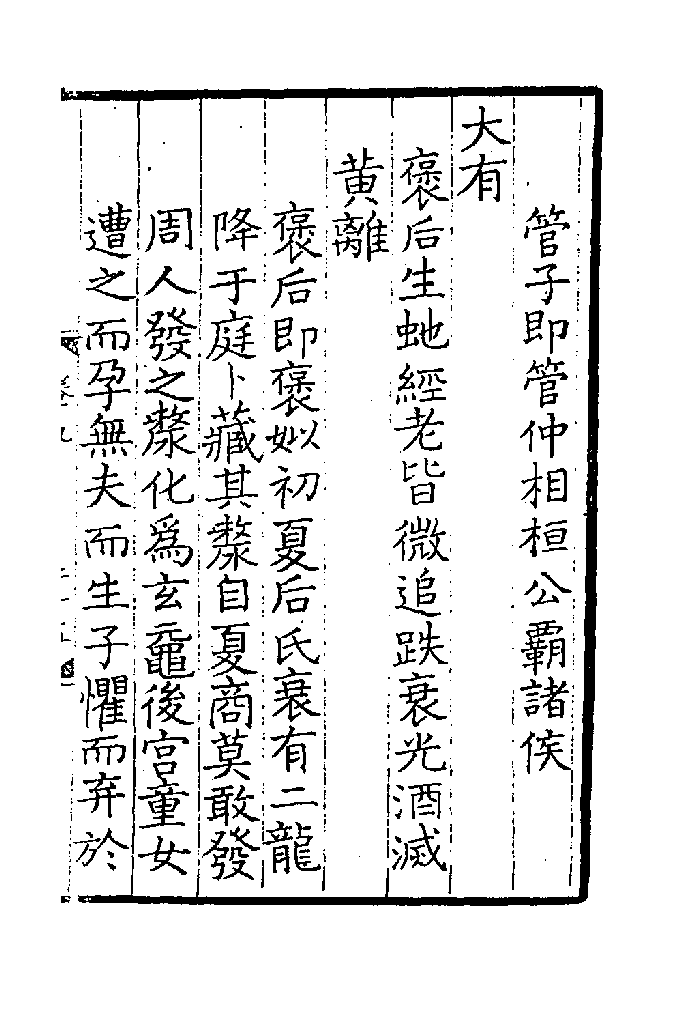 管子即管仲相桓公霸諸侯
大有
褒后生虵經老皆微追跌衰光酒滅
黃離
褒后即褒姒初夏后氏衰有二龍
降于庭卜藏其漦自夏商莫敢發
周人發之漦化爲玄黿後宮童女
遭之而孕無夫而生子懼而弃於